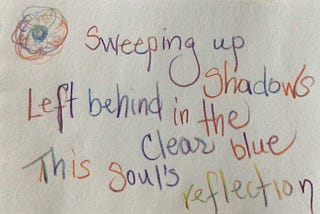 Sweeping up
Shadows
Left behind in the
Clear blue
This Soul's
reflection